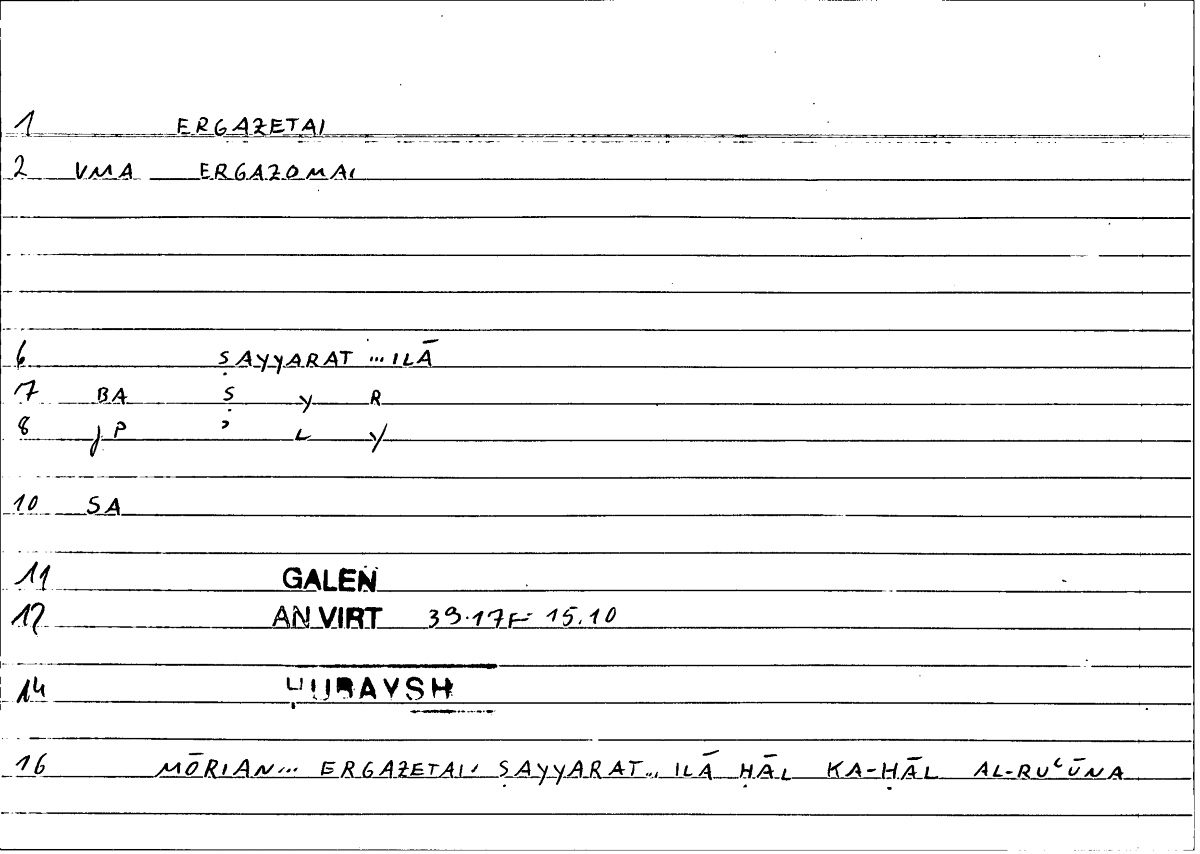 1 ERGAZETAI
2 VMA ERGAZOMAI
6 ṢAYYARAT ... ILĀ
7 BA Ṣ Y R
8 JP ʾ L Y
10 SA
11 GALEN
12 AN VIRT 39.17F= 15.10
14 ḤUBAYSH
16 MŌRIAN... ERGAZETAI: ṢAYYARAT... ILĀ ḤĀL KA-ḤĀL AL-RUʿŪNA